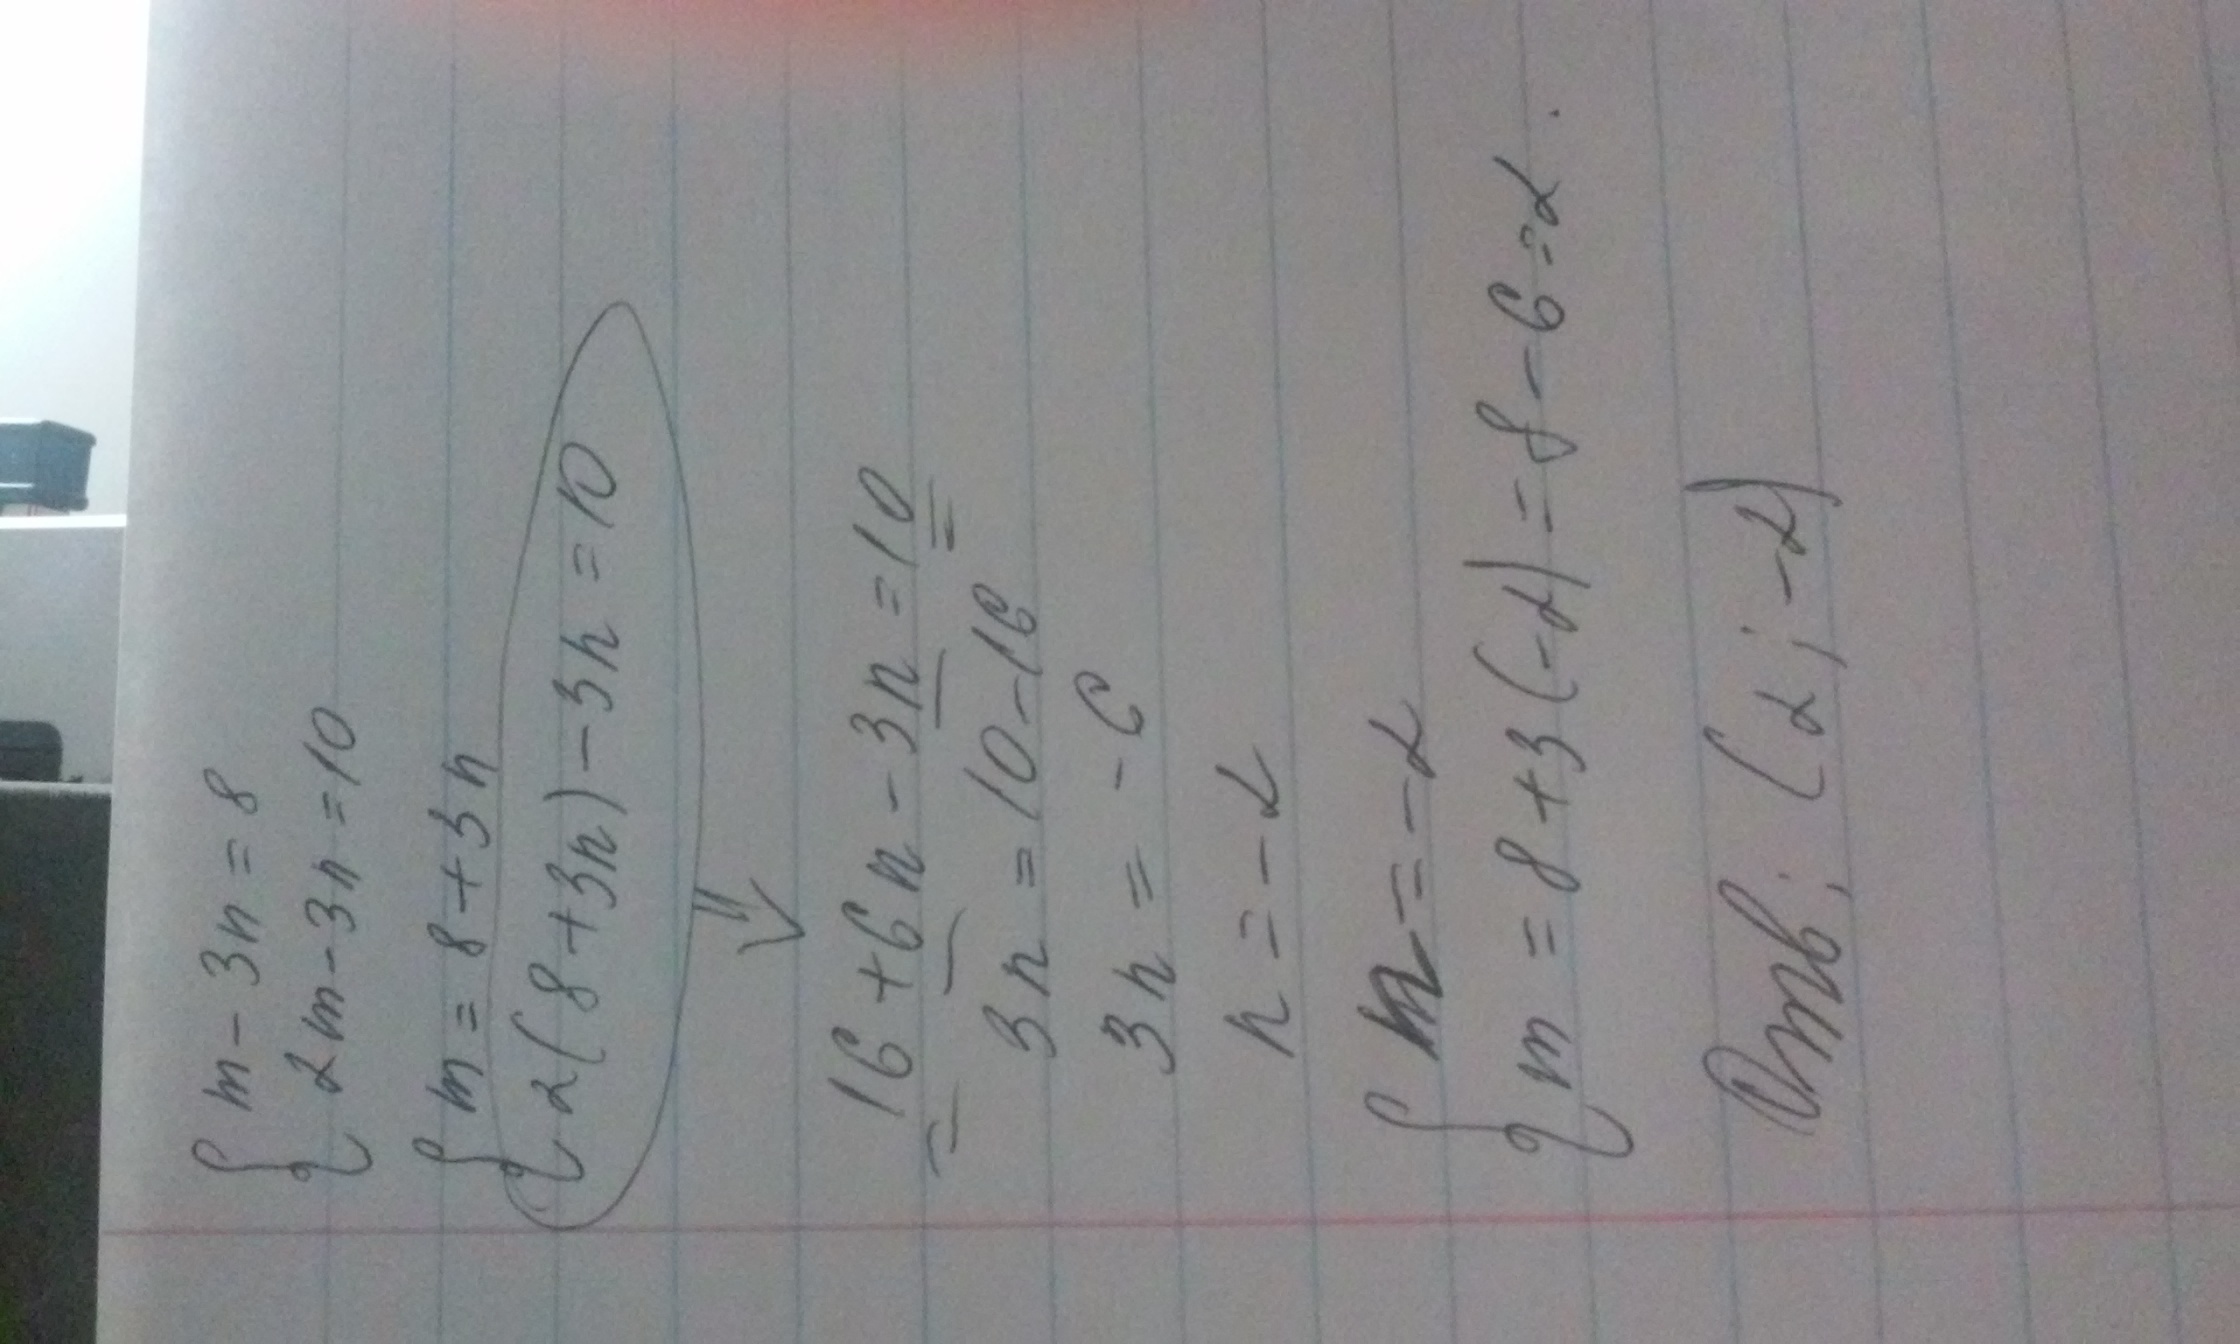 { m - 3n = 8
2m - 3n = 10
{ m = 8 + 3n
2(8 + 3n) - 3n = 10
16 + 6n - 3n = 10
3n = 10 - 16
3n = -6
n = -2
{ n = -2
m = 8 + 3(-2) = 8 - 6 = 2.
Отв: (2; -2)